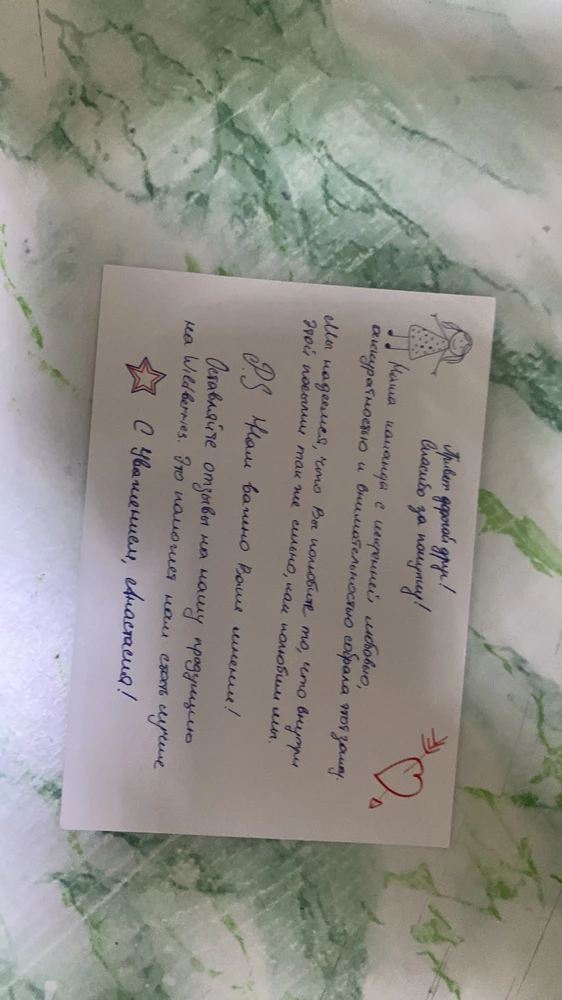 Привет дорогой друг!
Спасибо за покупку!
Наша команда с искренней любовью,
аккуратностью и внимательностью собрала этот заказ.
Мы надеемся, что Вы полюбите то, что внутри
этой посылки так же сильно, как полюбили мы.
P.S Нам важно Ваше мнение!
Оставляйте отзывы на нашу продукцию
на Wildberries. Это помогает нам стать лучше
С Уважением, Анастасия!